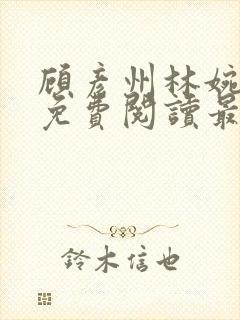 顾彦州林婉
免費閱讀最
鈴木信也